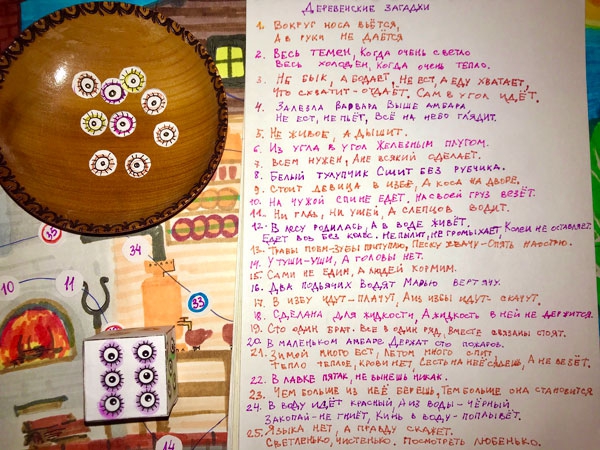 Деревенские загадки
1. Вокруг носа вьётся,
а в руки не даётся
2. Весь темен, когда очень светло
Весь холоден, когда очень тепло.
3. Не бык, а бодает, не ест, а еду хватает,
что схватит - отдаёт. Сам в угол идёт.
4. Залезла Варвара выше амбара
Не ест, не пьёт, всё на небо глядит.
5. Не живое, а дышит.
6. Из угла в угол железным плугом.
7. Всем нужен, а не всякий сделает.
8. Белый тулупчик сшит без рубчика.
9. Стоит девица в избе, а коса на дворе.
10. На чужой спине едет, на своей груз везёт.
11. Ни глаз, ни ушей, а слепцов водит.
12. В лесу родилась, а в воде живёт.
Едет воз без колёс. Не пылит, не громыхает, колеи не оставляет.
13. Травы поем - зубы притуплю, песку схвачу - опять наострю.
14. У туши - уши, а головы нет.
15. Сами не едим, а людей кормим.
16. Два подьячих водят Марью вертячу.
17. В избу идут - плачут, а из избы идут - скачут.
18. Сделана для жидкости, а жидкость в ней не держится.
19. Сто один брат. Все в один ряд, вместе связаны стоят.
20. В маленьком амбаре держат сто пожаров.
21. Зимой много ест, летом много спит,
тело теплое, крови нет, сесть на неё сядешь, а не везёт.
22. В лавке пятак, не вынешь никак.
23. Чем больше из неё берёшь, тем больше она становится
24. В воду идёт красный, а из воды - чёрный
Закопай - не гниёт, кинь в воду - поплывёт.
25. Языка нет, а правду скажет.
Светленько, чистенько. Посмотреть любенько.
35
34
33
10
11
14